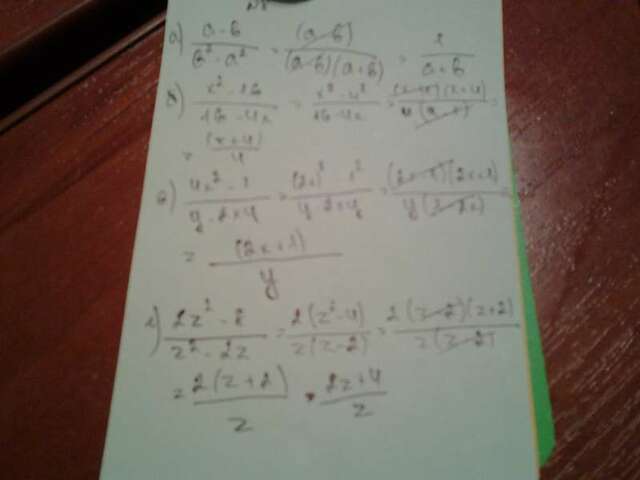 а) (a-b)/(b²-a²) = (a-b)/((a-b)(a+b)) = 1/(a+b)
б) (x²-16)/(16-4x) = (x²-4²)/(16-4x) = ((x-4)(x+4))/(4(4-x)) =
= (x+4)/4
в) (4x²-1)/(y-2xy) = ((2x)²-1²)/(y-2xy) = ((2x-1)(2x+1))/(y(1-2x)) =
= (2x+1)/y
г) (2z²-8)/(z²-2z) = 2(z²-4)/(z(z-2)) = 2(z-2)(z+2)/(z(z-2))
= 2(z+2)/z = (2z+4)/z